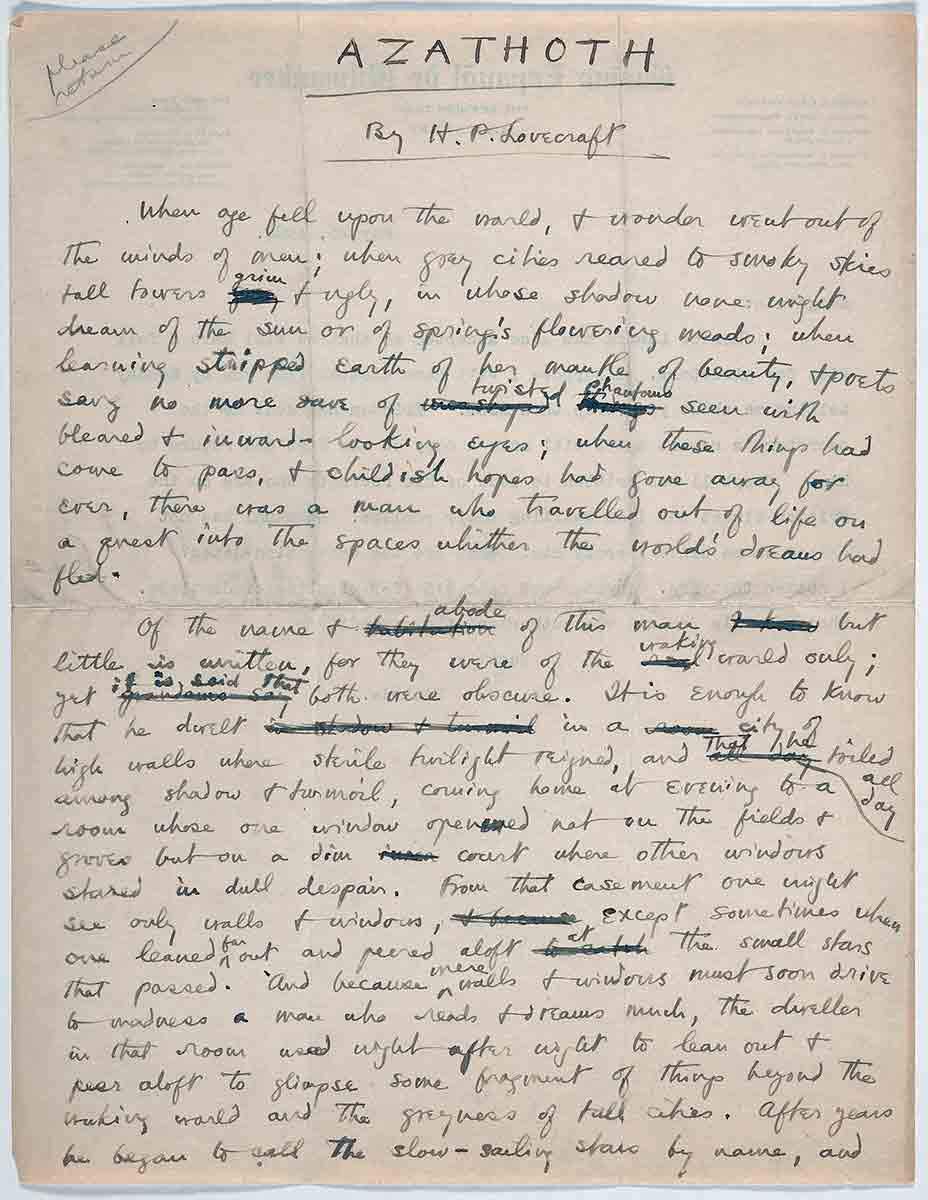 please
return
AZATHOTH
By H. P. Lovecraft
When age fell upon the world, & wonder went out of
the minds of men; when grey cities reared to smoky skies
tall towers grim & ugly, in whose shadow none might
dream of the sun or of spring's flowering meads; when
learning stripped Earth of her mantle of beauty, & poets
sang no more save of twisted phantoms seen with
bleared & inward-looking eyes; when these things had
come to pass, & childish hopes had gone away for
ever, there was a man who travelled out of life on
a quest into the spaces whither the world's dreams had
fled.
Of the name & habitation abode of this man I know but
little is written, for they were of the waking world only;
yet grandams say it is said that both were obscure. It is enough to know
that he dwelt in shadow & turmoil in a room city of
high walls where sterile twilight reigned, and all day that he toiled all day
among shadow & turmoil, coming home at evening to a
room whose one window opened not on the fields &
groves but on a dim inner court where other windows
stared in dull despair. From that casement one might
see only walls & windows, & because except sometimes when
one leaned far out and peered aloft to catch at the small stars
that passed. And because mere walls & windows must soon drive
to madness a man who reads & dreams much, the dweller
in that room used night after night to lean out &
peer aloft to glimpse some fragment of things beyond the
waking world and the greyness of tall cities. After years
he began to call the slow-sailing stars by name, and